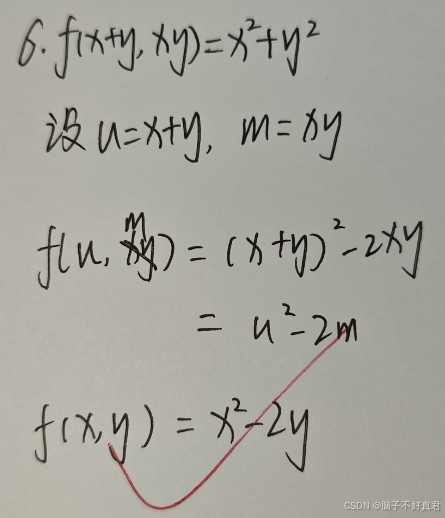 6. f(x+y, xy)=x²+y²
设 u=x+y, m=xy
f(u, m)=(x+y)²-2xy
= u²-2m
f(x,y)=x²-2y
CSDN @脑子不好真君